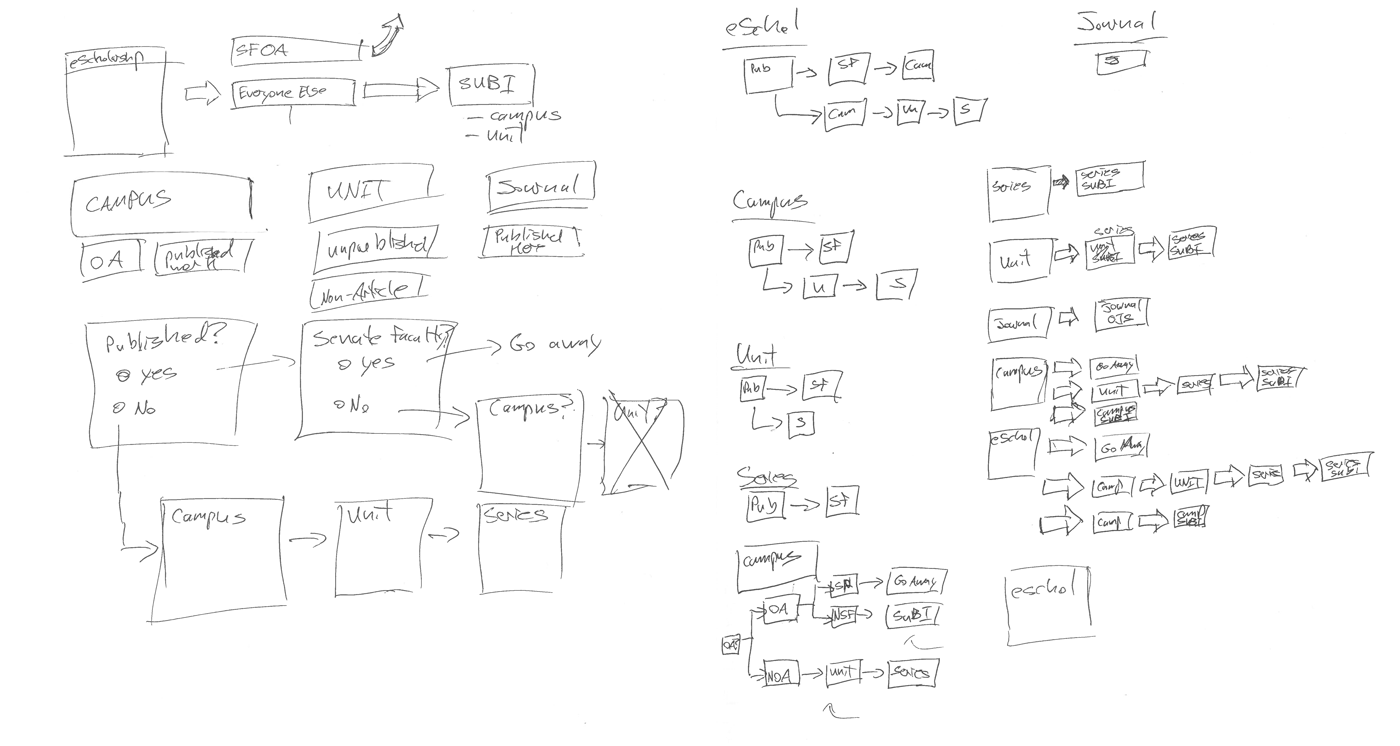 eScholarship
SFOA
Everyone Else
SUBI
- campus
- unit
CAMPUS
UNIT
Journal
OA
published
work
unpublished
Published
Non-Article
Published?
Yes
No
Senate Faculty?
Yes
No
Go away
Campus?
Unit?
Campus
Unit
Series
eSchol
Pub
SF
Cam
Cam
U
S
Campus
Pub
SF
U
S
Unit
Pub
SF
S
Series
Pub
SF
campus
OA?
OA
SF
Go Away
NSF
SUBI
NOA
Unit
Series
Journal
S
Series
series
SUBI
Unit
series
Unit
SUBI
series
SUBI
Journal
Journal
OJS
campus
Go Away
Unit
series
series
SUBI
campus
SUBI
eschol
Go Away
Camp
UNIT
Series
series
SUBI
Camp
camp
SUBI
eschol